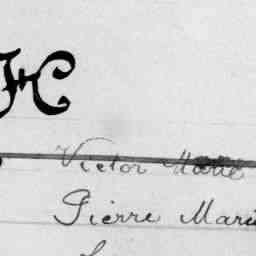 K
Victor Marie
Pierre Marie